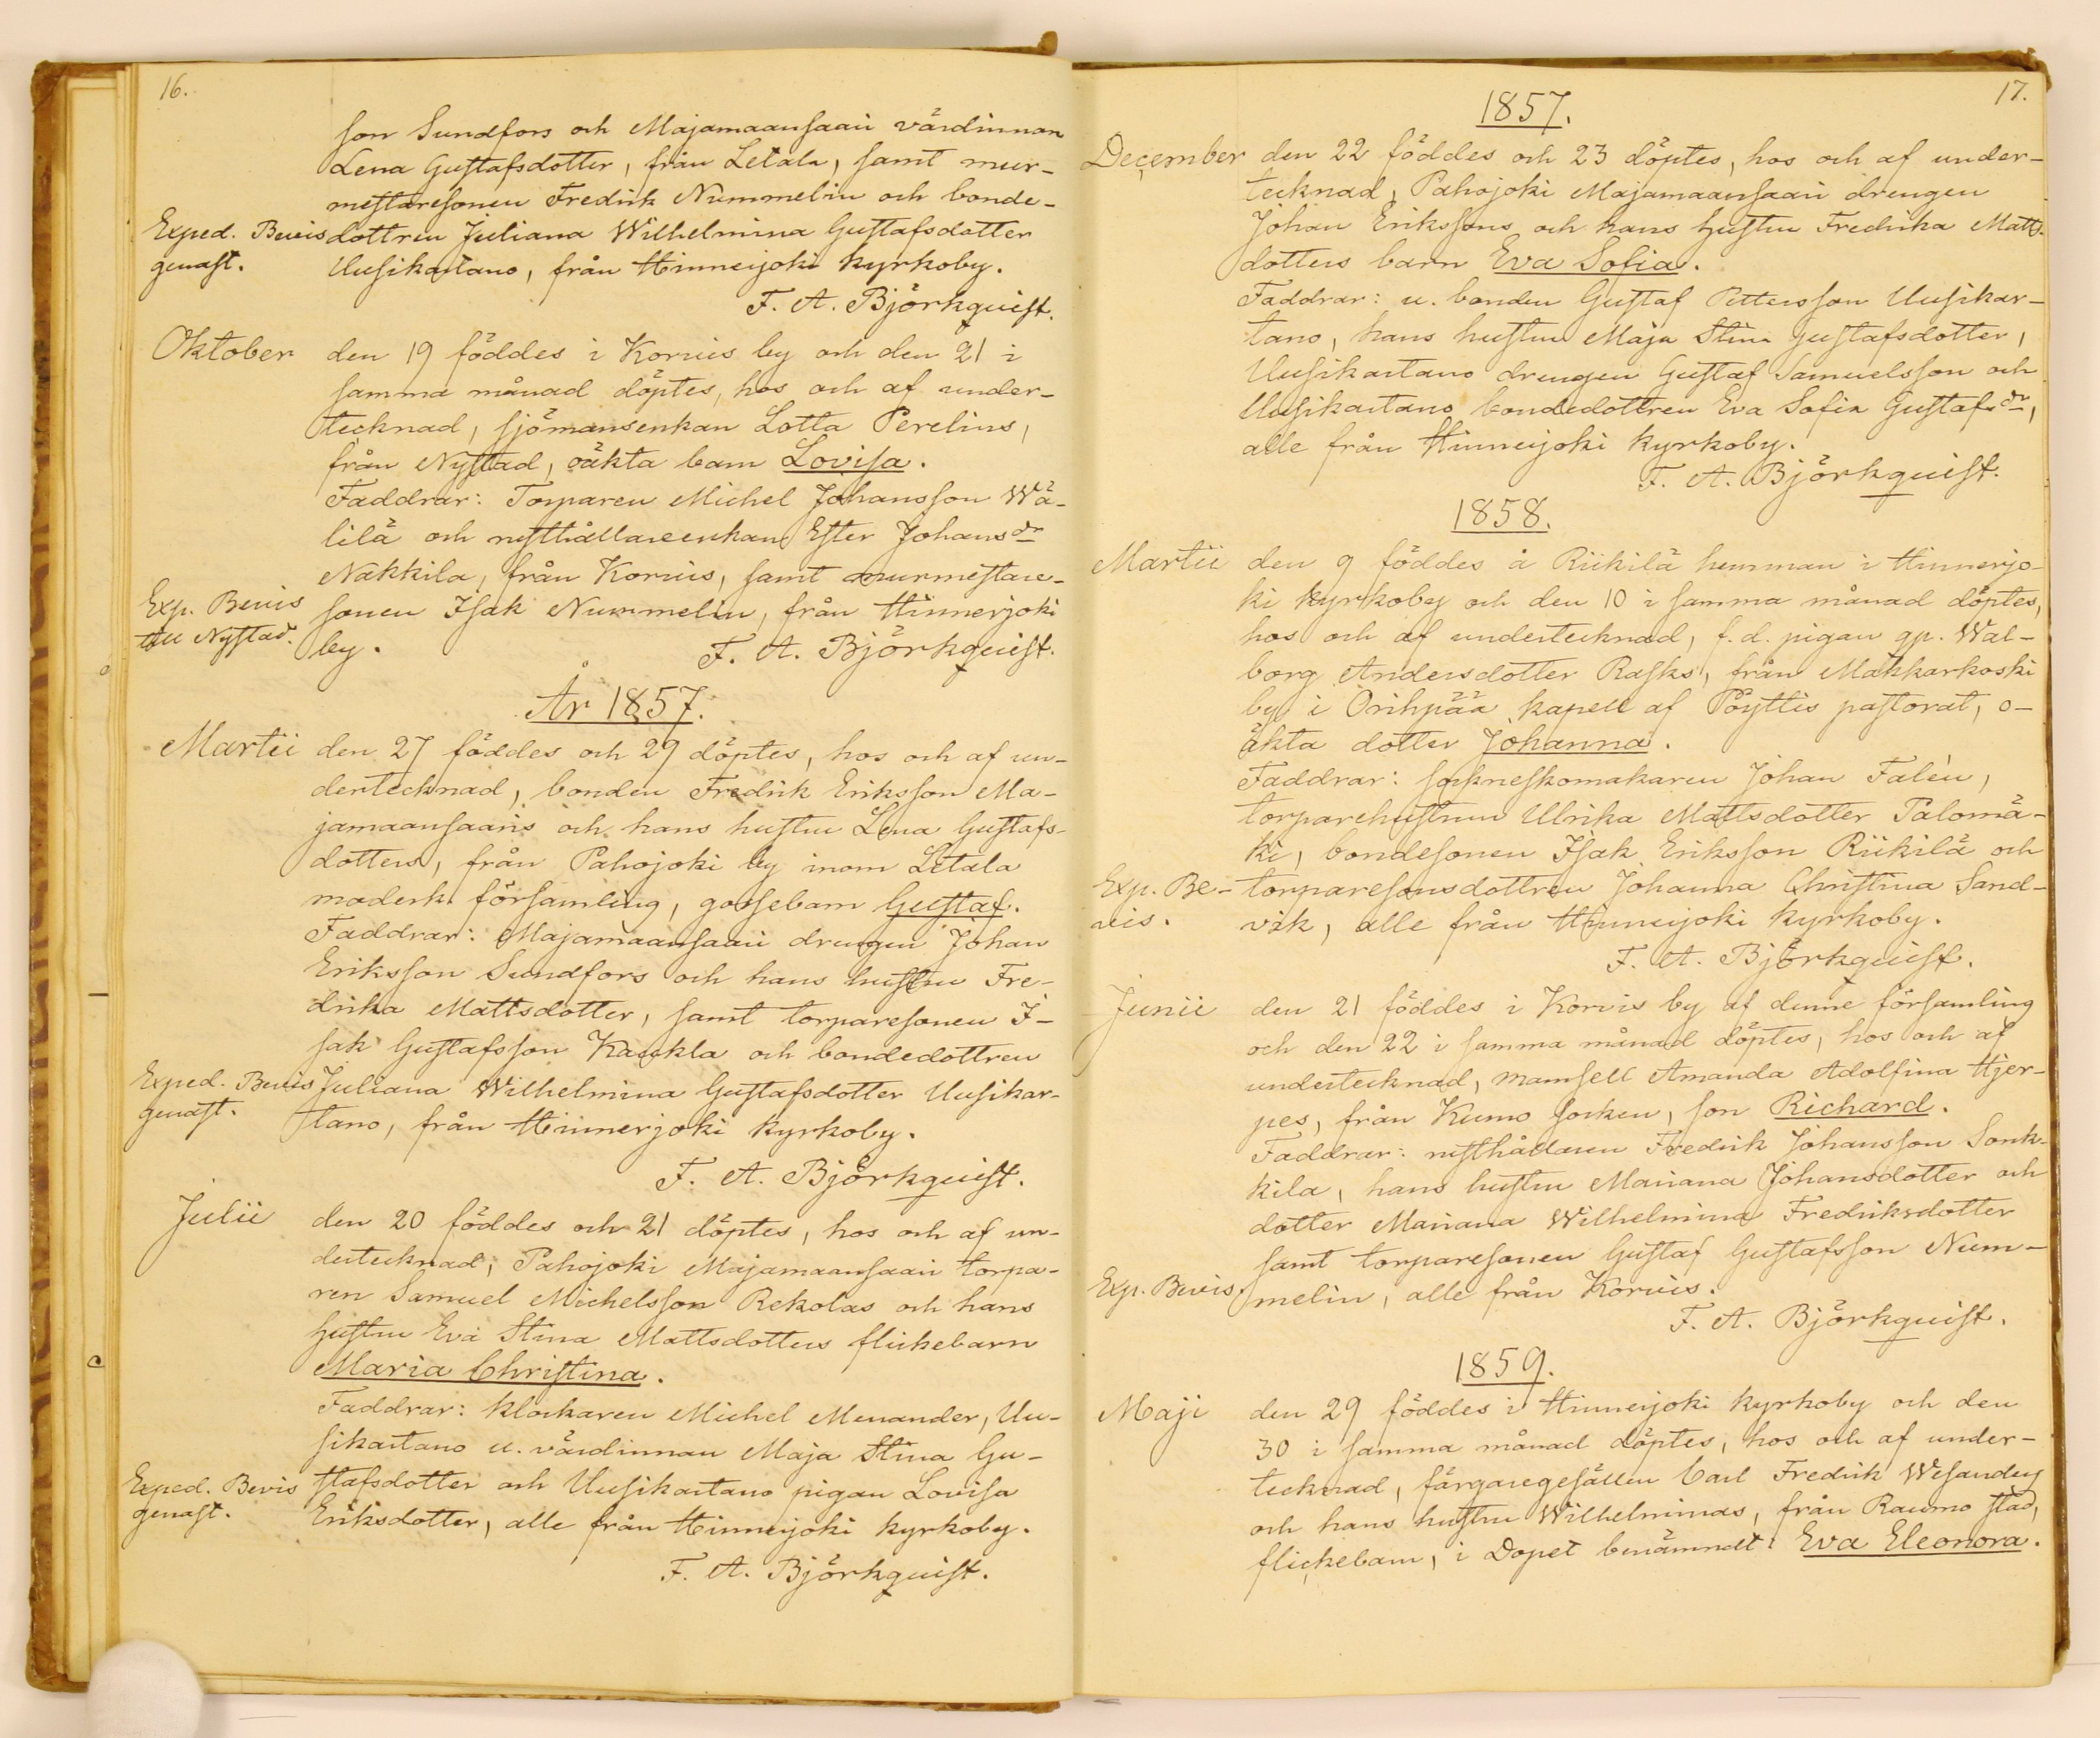 16.
son Sundfors och Majamaansaari värdinnan
Lena Gustafsdotter, från Letala, samt mur-
mestaresonen Fredrik Nummelin och bonde-
Exped. Bevis dottren Juliana Wilhelmina Gustafsdotter
genast. Uusikartano, från Hinnerjoki kyrkoby.
F. A. Björkquist.
Oktober den 19 föddes i Korvis by och den 21 i
samma månad döptes, hos och af under-
tecknad, sjömansenkan Lotta Perelius,
från Nystad, oäkta barn Lovisa.
Faddrar: Torparen Michel Johansson Wä-
lilä och rusthållareenkan Ester Johansdr
Nakkila, från Korvis, samt murmestare-
Exp. Bevis sonen Isak Nummelin, från Hinnerjoki
till Nystad. by.
F. A. Björkquist.
År 1857.
Martii den 27 föddes och 29 döptes, hos och af un-
dertecknad, bonden Fredrik Eriksson Ma-
jamaansaaris och hans hustru Lena Gustafs-
dotters, från Pahojoki by inom Letala
moderk. församling, gossebarn Gustaf.
Faddrar: Majamaansaari drengen Johan
Eriksson Sundfors och hans hustru Fre-
drika Mattsdotter, samt torparesonen I-
sak Gustafsson Kaukla och bondedottren
Exped. Bevis Juliana Wilhelmina Gustafsdotter Uusikar-
genast. tano, från Hinnerjoki kyrkoby.
F. A. Björkquist.
Julii den 20 föddes och 21 döptes, hos och af un-
dertecknad, Pahojoki Majamaansaari torpa-
ren Samuel Michelsson Rekolas och hans
hustru Eva Stina Mattsdotters flickebarn
Maria Christina.
Faddrar: klockaren Michel Menander, Uu-
sikartano u. värdinnan Maja Stina Gu-
Exped. Bevis stafsdotter och Uusikartano pigan Lovisa
genast. Eriksdotter, alle från Hinnerjoki kyrkoby.
F. A. Björkquist.
17.
1857.
December den 22 föddes och 23 döptes, hos och af under-
tecknad, Pahojoki Majamaansaari drengen
Johan Erikssons och hans hustru Fredrika Matts-
dotters barn Eva Sofia.
Faddrar: u. bonden Gustaf Pettersson Uusikar-
tano, hans hustru Maja Stina Gustafsdotter,
Uusikartano drengen Gustaf Samuelsson och
Uusikartano bondedottren Eva Sofia Gustafsdr,
alle från Hinnerjoki kyrkoby.
F. A. Björkquist.
1858.
Martii den 9 föddes å Riikilä hemman i Hinnerjo-
ki kyrkoby och den 10 i samma månad döptes,
hos och af undertecknad, f. d. pigan qp. Wal-
borg Andersdotter Rasks, från Makkarkoski
by i Orihpää kapell af Pöyttis pastorat, o-
äkta dotter Johanna.
Faddrar: sockneskomakaren Johan Falén,
torparehustrun Ulrika Mattsdotter Palomä-
ki, bondesonen Isak Eriksson Riikilä och
Exp. Be- torparesonsdottren Johanna Christina Sand-
vis. vik, alle från Hinnerjoki kyrkoby.
F. A. Björkquist.
Junii den 21 föddes i Korvis by af denne församling
och den 22 i samma månad döptes, hos och af
undertecknad, mamsell Amanda Adolfina Hjer-
pes, från Kumo socken, son Richard.
Faddrar: rusthållaren Fredrik Johansson Sonk-
kila, hans hustru Mariana Johansdotter och
dotter Mariana Wilhelmina Fredriksdotter
samt torparesonen Gustaf Gustafsson Num-
Exp. Bevis. melin, alle från Korvis.
F. A. Björkquist.
1859.
Maji den 29 föddes i Hinnerjoki kyrkoby och den
30 i samma månad döptes, hos och af under-
tecknad, färgaregesällen Carl Fredrik Wesanders
och hans hustru Wilhelminas, från Raumo stad,
flickebarn, i Dopet benämndt: Eva Eleonora.